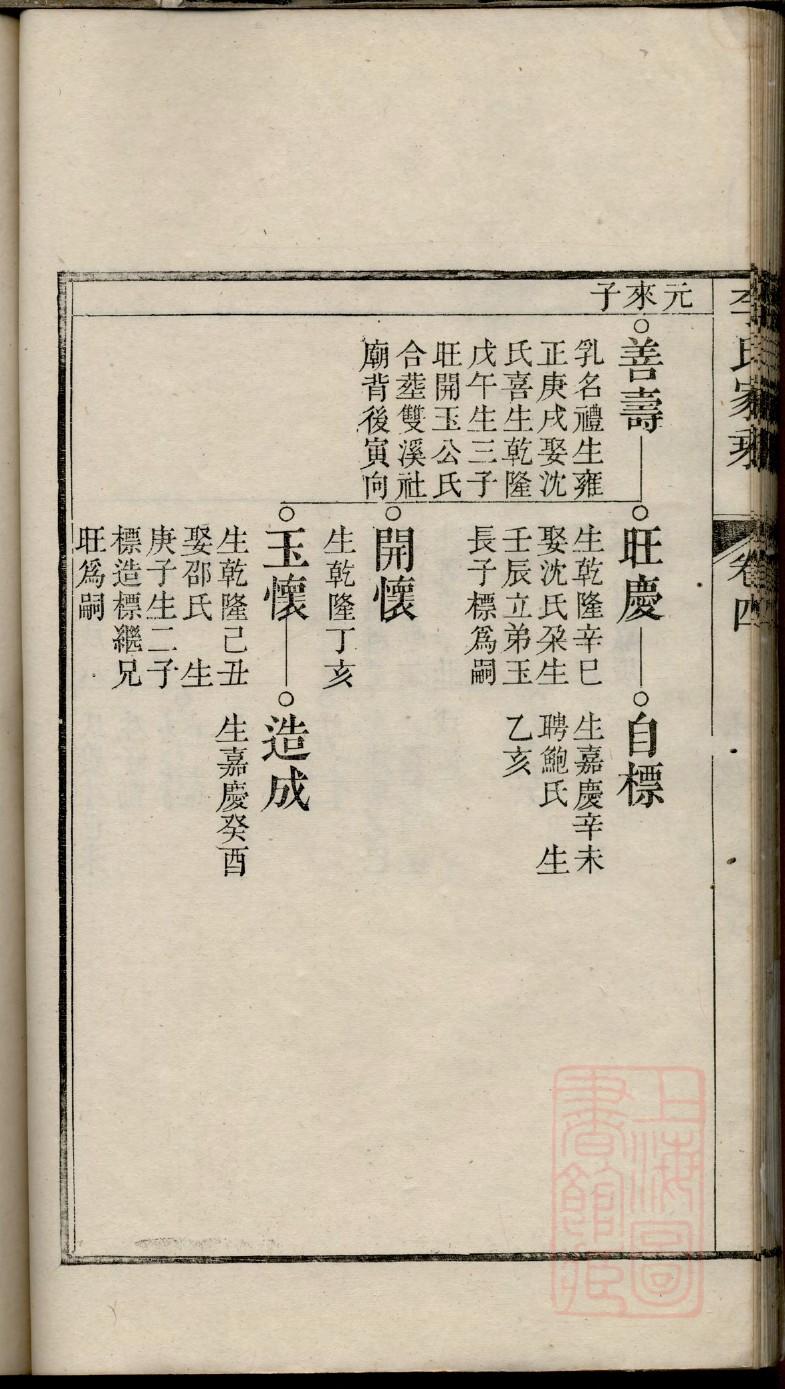 李氏家乘
卷四
元來子
善壽
乳名禮生雍
正庚戌娶沈
氏喜生乾隆
戊午生三子
旺開玉公氏
合塟雙溪社
廟背後寅向
旺慶
生乾隆辛巳
娶沈氏朶生
壬辰立弟玉
長子標爲嗣
自標
生嘉慶辛未
聘鮑氏 生
乙亥
開懷
生乾隆丁亥
玉懷
生乾隆己丑
娶邵氏 生
庚子生二子
標造標繼兄
旺爲嗣
造成
生嘉慶癸酉
上海圖
書館藏